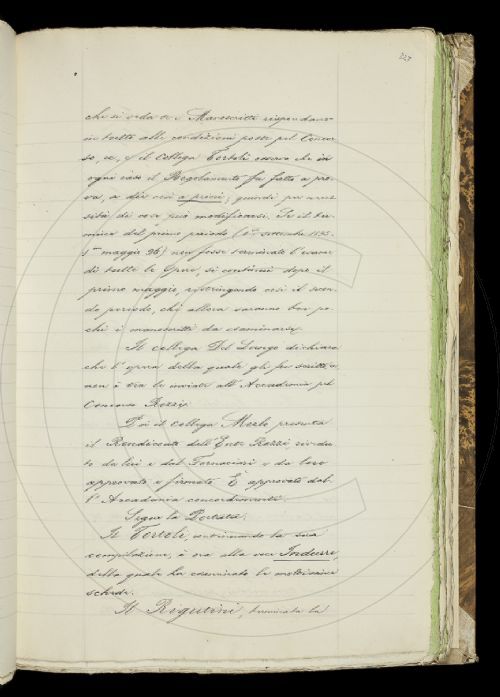 227
che si veda se i Manoscritti rispondano
in tutto alle condizioni poste pel Concor
so, ec, e il collega Tortoli osserva che in
ogni caso il Regolamento fu fatto a pro-
va, a dir così a priori; quindi per neces
sità di cose può modificarsi. Se il ter-
mine del primo periodo (1° settembre 1895.
1° maggio 96) non fosse terminato l'esame
di tutte le Opere, si continui dopo il
primo maggio, restringendo così il secon
do periodo, chè allora saranno ben po-
chi i manoscritti da esaminarsi.
Il collega Del Lungo dichiara
che l'opera della quale gli fu scritto,
non è tra le inviate all'Accademia pel
Concorso Rezzi.
Poi il collega Merlo presenta
il Rendiconto dell'Ente Rezzi, rivedu
to da lui e dal Fornaciari e da loro
approvato e firmato. È approvato dal-
l'Accademia concordemente.
Segue la Tortoli.
Il Tortoli, continuando la sua
compilazione, è ora alla voce Indurre,
della quale ha esaminato le moltissime
schede.
Il Rigutini, terminata la